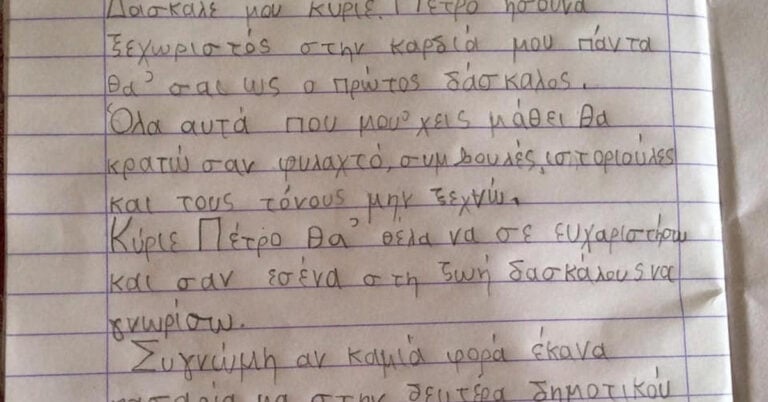 Δάσκαλέ μου κύριε Πέτρο ήσουνα
ξεχωριστός στην καρδιά μου πάντα
θα' σαι ως ο πρώτος δάσκαλος.
Όλα αυτά που μου' χεις μάθει θα
κρατώ σαν φυλαχτό, συμβουλές, ιστοριούλες
και τους τόνους μην ξεχνώ.
Κύριε Πέτρο θα' θελα να σε ευχαριστήσω
και σαν εσένα στη ζωή δασκάλους να
γνωρίσω.
Συγνώμη αν καμιά φορά έκανα
στην δευτέρα δημοτικού